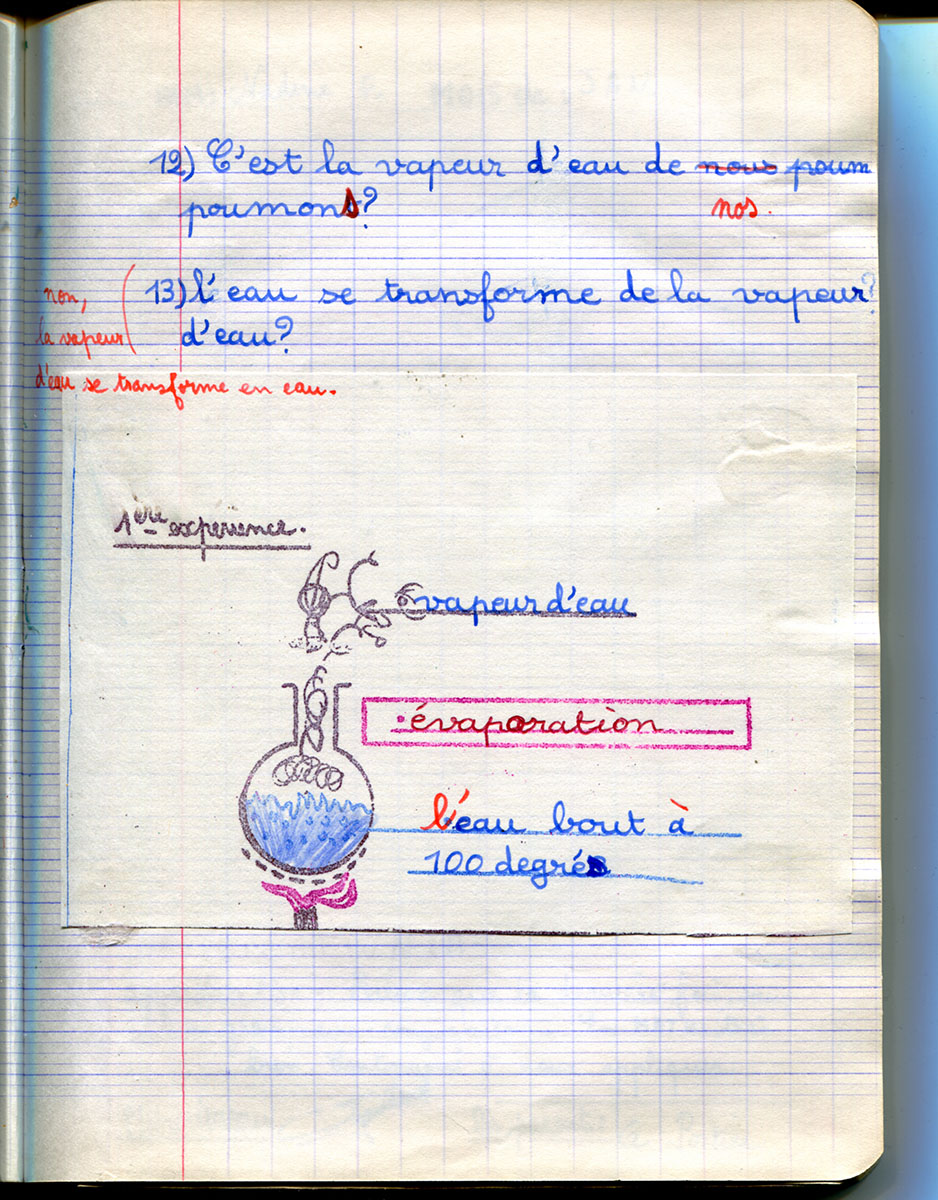 12) C'est la vapeur d'eau de nous poum
poumons?
nos.
13) l'eau se transforme de la vapeur?
d'eau?
non,
la vapeur
d'eau se transforme en eau.
1ère expérience.
vapeur d'eau
évaporation
l'eau bout à
100 degrés